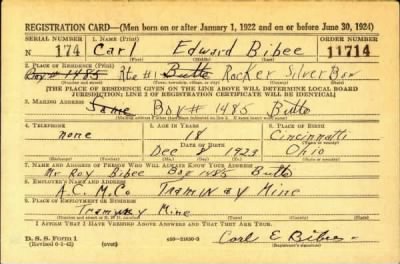 REGISTRATION CARD—(Men born on or after January 1, 1922 and on or before June 30, 1924)
SERIAL NUMBER 1. NAME (Print) ORDER NUMBER
N 174 Carl Edward Bibee 11714
(First) (Middle) (Last)
2. PLACE OF RESIDENCE (Print)
Box # 1485 Rte #1 Butte Rocker Silver Bow
(Number and street) (Town, township, village, or city) (County) (State)
[THE PLACE OF RESIDENCE GIVEN ON THE LINE ABOVE WILL DETERMINE LOCAL BOARD
JURISDICTION; LINE 2 OF REGISTRATION CERTIFICATE WILL BE IDENTICAL]
3. MAILING ADDRESS
Same Box # 1485 Butte
4. TELEPHONE 5. AGE IN YEARS 6. PLACE OF BIRTH
none 18 Cincinnatti
DATE OF BIRTH
Dec 8 1923 Ohio
7. NAME AND ADDRESS OF PERSON WHO WILL ALWAYS KNOW YOUR ADDRESS
Mr Roy Bibee Box 1485 Butte
8. EMPLOYER'S NAME AND ADDRESS
A.C.M.Co Tramway Mine
9. PLACE OF EMPLOYMENT OR BUSINESS
Tramway Mine
I AFFIRM THAT I HAVE VERIFIED ABOVE ANSWERS AND THAT THEY ARE TRUE.
D. S. S. Form 1
(Revised 6-1-42) Carl E Bibee
(Registrant's signature)